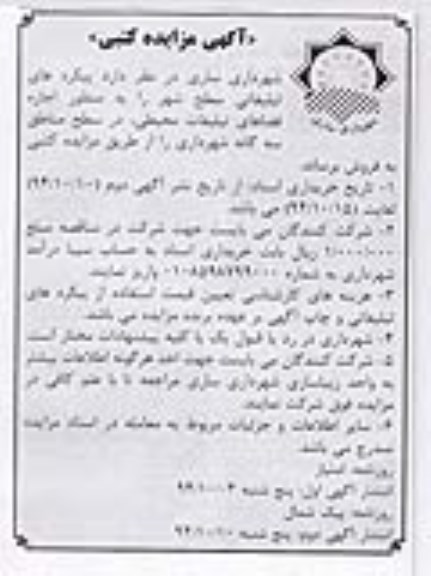 «آگهی مزایده کتبی»
شهرداری ساری در نظر دارد پیکره های
تبلیغاتی سطح شهر را به منظور اجاره
فضاهای تبلیغات محیطی، در سطح مناطق
سه گانه شهرداری را از طریق مزایده کتبی
به فروش برساند.
۱- تاریخ خریداری اسناد: از تاریخ نشر آگهی دوم (۹۴/۱۰/۱۰)
لغایت (۹۴/۱۰/۱۵) می باشد.
۲- شرکت کنندگان می بایست جهت شرکت در مناقصه مبلغ
۱/۰۰۰/۰۰۰ ریال بابت خریداری اسناد به حساب سیبا درآمد
شهرداری به شماره واریز نمایند.
۳- هزینه های کارشناسی تعیین قیمت استفاده از پیکره های
تبلیغاتی و چاپ آگهی بر عهده برنده مزایده می باشد.
۴- شهرداری در رد یا قبول یک یا کلیه پیشنهادات مختار است.
۵- شرکت کنندگان می بایست جهت اخذ هرگونه اطلاعات بیشتر
به واحد زیباسازی شهرداری ساری مراجعه تا با علم کافی در
مزایده فوق شرکت نمایند.
۶- سایر اطلاعات و جزئیات مربوط به معامله در اسناد مزایده
مندرج می باشد.
روزنامه: امتیاز
انتشار آگهی اول: پنج شنبه
روزنامه: پیک شمال
انتشار آگهی دوم: پنج شنبه ۹۴/۱۰/۱۰